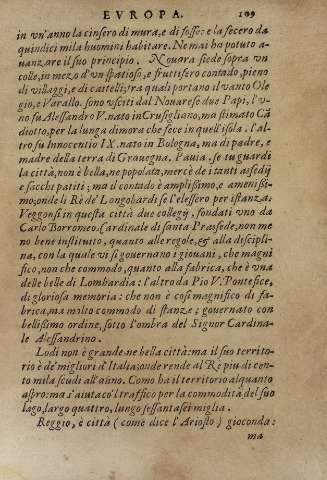 EVROPA. 109
in vn'anno la cinsero di mura, e di fosse: e la fecero da
quindici mila huomini habitare. Ne mai ha potuto a-
uanzare il suo principio. Nouara siede sopra vn
colle, in mezo d'vn spatioso, e fruttifero contado, pieno
di villaggi, e di castelli; tra quali portano il vanto Ole
gio, e Varallo. sono vsciti dal Nouarese due Papi, l'v-
no fu Alessandro V. nato in Crusigliano, ma stimato Cā
diotto, per la lunga dimora che fece in quell'isola. l'al
tro fu Innocentio IX. nato in Bologna, ma di padre, e
madre della terra di Grauegna. Pauia. se tu guardi
la città, non è bella, ne popolata, mercè de i tanti assedij
e sacchi patiti: ma il contado è amplißimo, e amenißi-
mo; onde li Rè de' Longobardi se l'elessero per istanza;
Veggonsi in questa città due collegij, fondati vno da
Carlo Borromeo. Cardinale di santa Prassede, non me
no bene instituito, quanto alle regole, & alla discipli-
na, con la quale vi si gouernano i giouani, che magni
fico, non che commodo, quanto alla fabrica, che è vna
delle belle di Lombardia: l'altro da Pio V. Pontefice,
di gloriosa memoria: che non è cosi magnifico di fa-
brica, ma molto commodo di stanze; gouernato con
bellißimo ordine, sotto l'ombra del Signor Cardina-
le Alessandrino.
Lodi non è grande ne bella città: ma il suo territo-
rio è de' migliori d'Italia; onde rende al Rè piu di cen-
to mila scudi all'anno. Como ha il territorio alquanto
aspro: ma s'aiuta co'l traffico per la commodità del suo
lago, largo quattro, lungo sessantasei miglia.
Reggio, è città (come dice l'Ariosto) gioconda:
ma